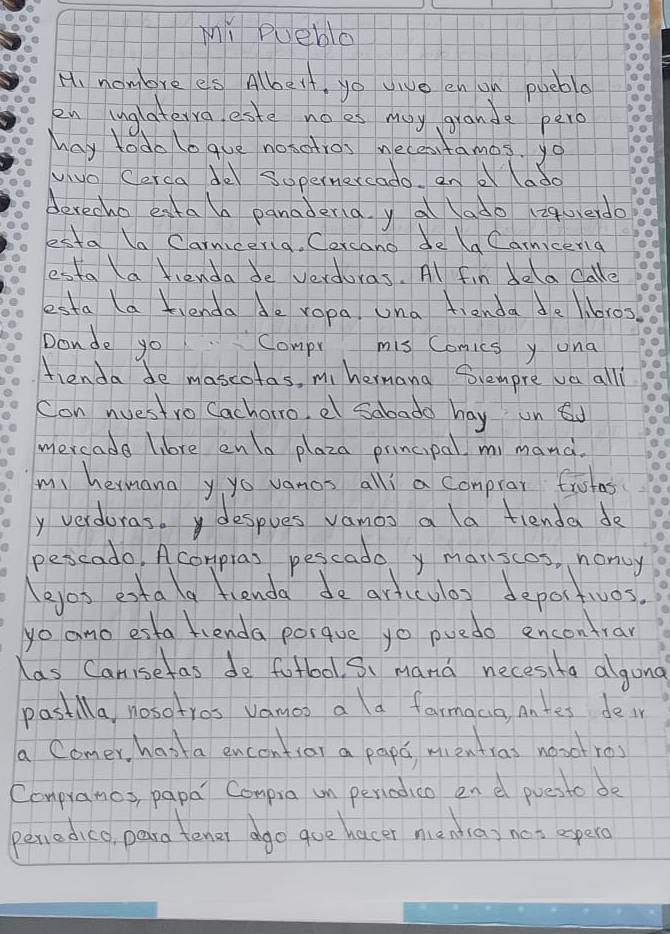 Mi Pueblo
Mi nombre es Albert, yo vivo en un pueblo
en inglaterra, este no es muy grande pero
hay todo lo que nosotros necesitamos. yo
vivo cerca del Supermercado. en el lado
derecho esta la panaderia y al lado izquierdo
esta la Carniceria. Cercano de la Carniceria
esta la tienda de verduras. Al fin dela Calle
esta la tienda de ropa, una tienda de libros.
Donde yo Compr mis Comics y una
tienda de mascotas, mi hermana Siempre va alli
Con nuestro Cachorro. el Sabado hay un
mercado libre enla plaza principal. mi mamá.
mi hermana y yo vamos alli a comprar frutas
y verduras. y despues vamos a la tienda de
pescado. A comprar pescado y mariscos, nomuy
lejos esta la tienda de articulos deportivos.
yo amo esta tienda porque yo puedo encontrar
las Camisetas de futbol. Si mamá necesita alguna
pastilla, nosotros vamos a la farmacia, Antes de ir
a Comer, hasta encontrar a papá, mientras nosotros
Compramos, papá Compra un periodico en el puesto de
periodico, para tener algo que hacer mientras nos espera